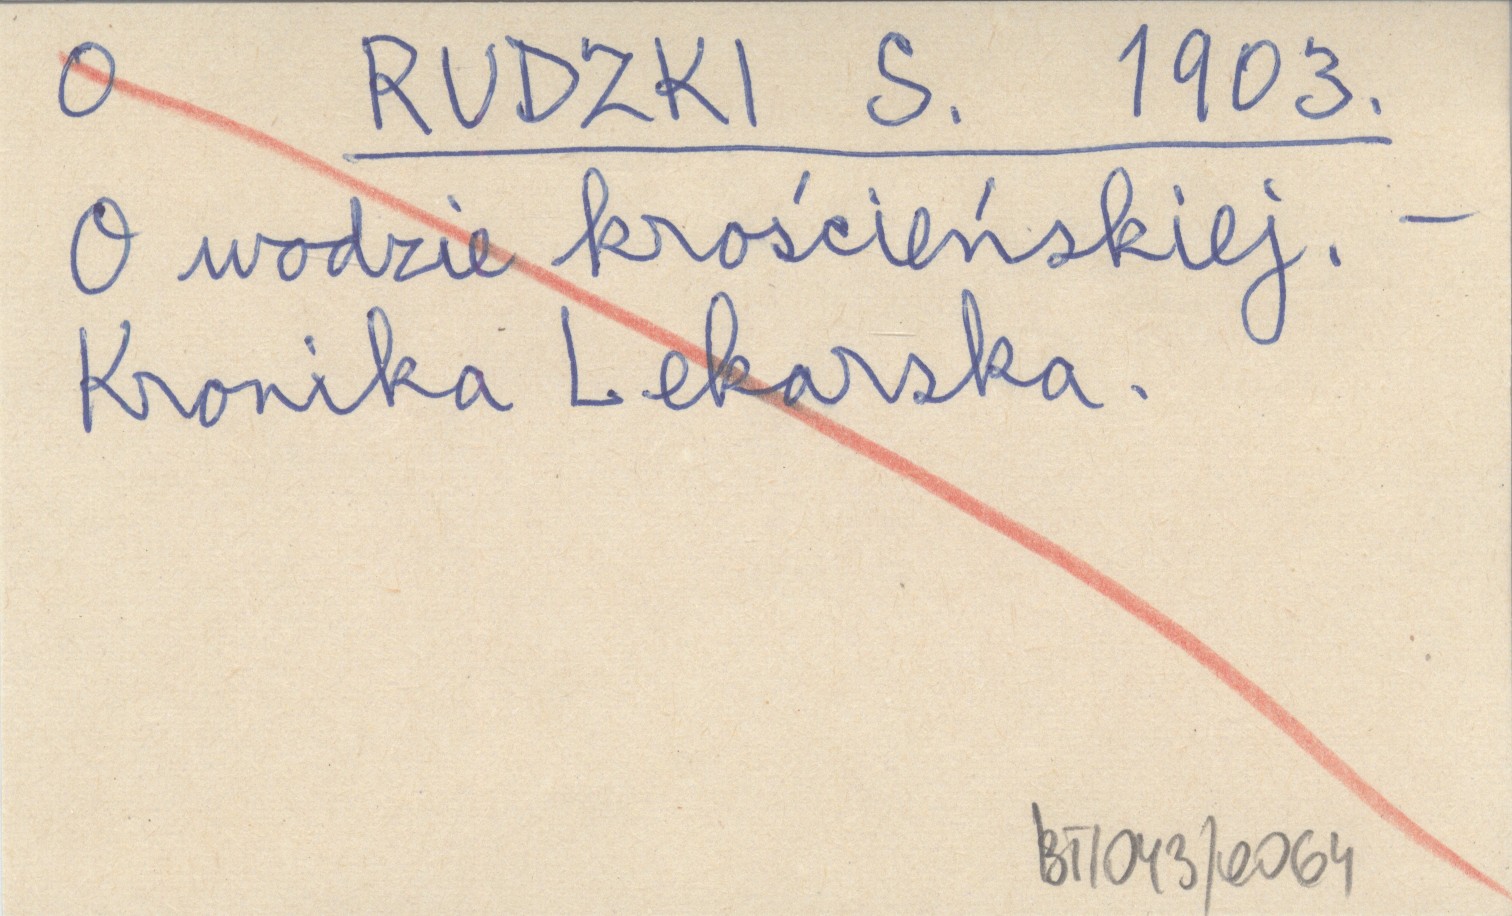 O RUDZKI S. 1903.
O wodzie krościeńskiej. –
Kronika Lekarska.
BT/043/6064